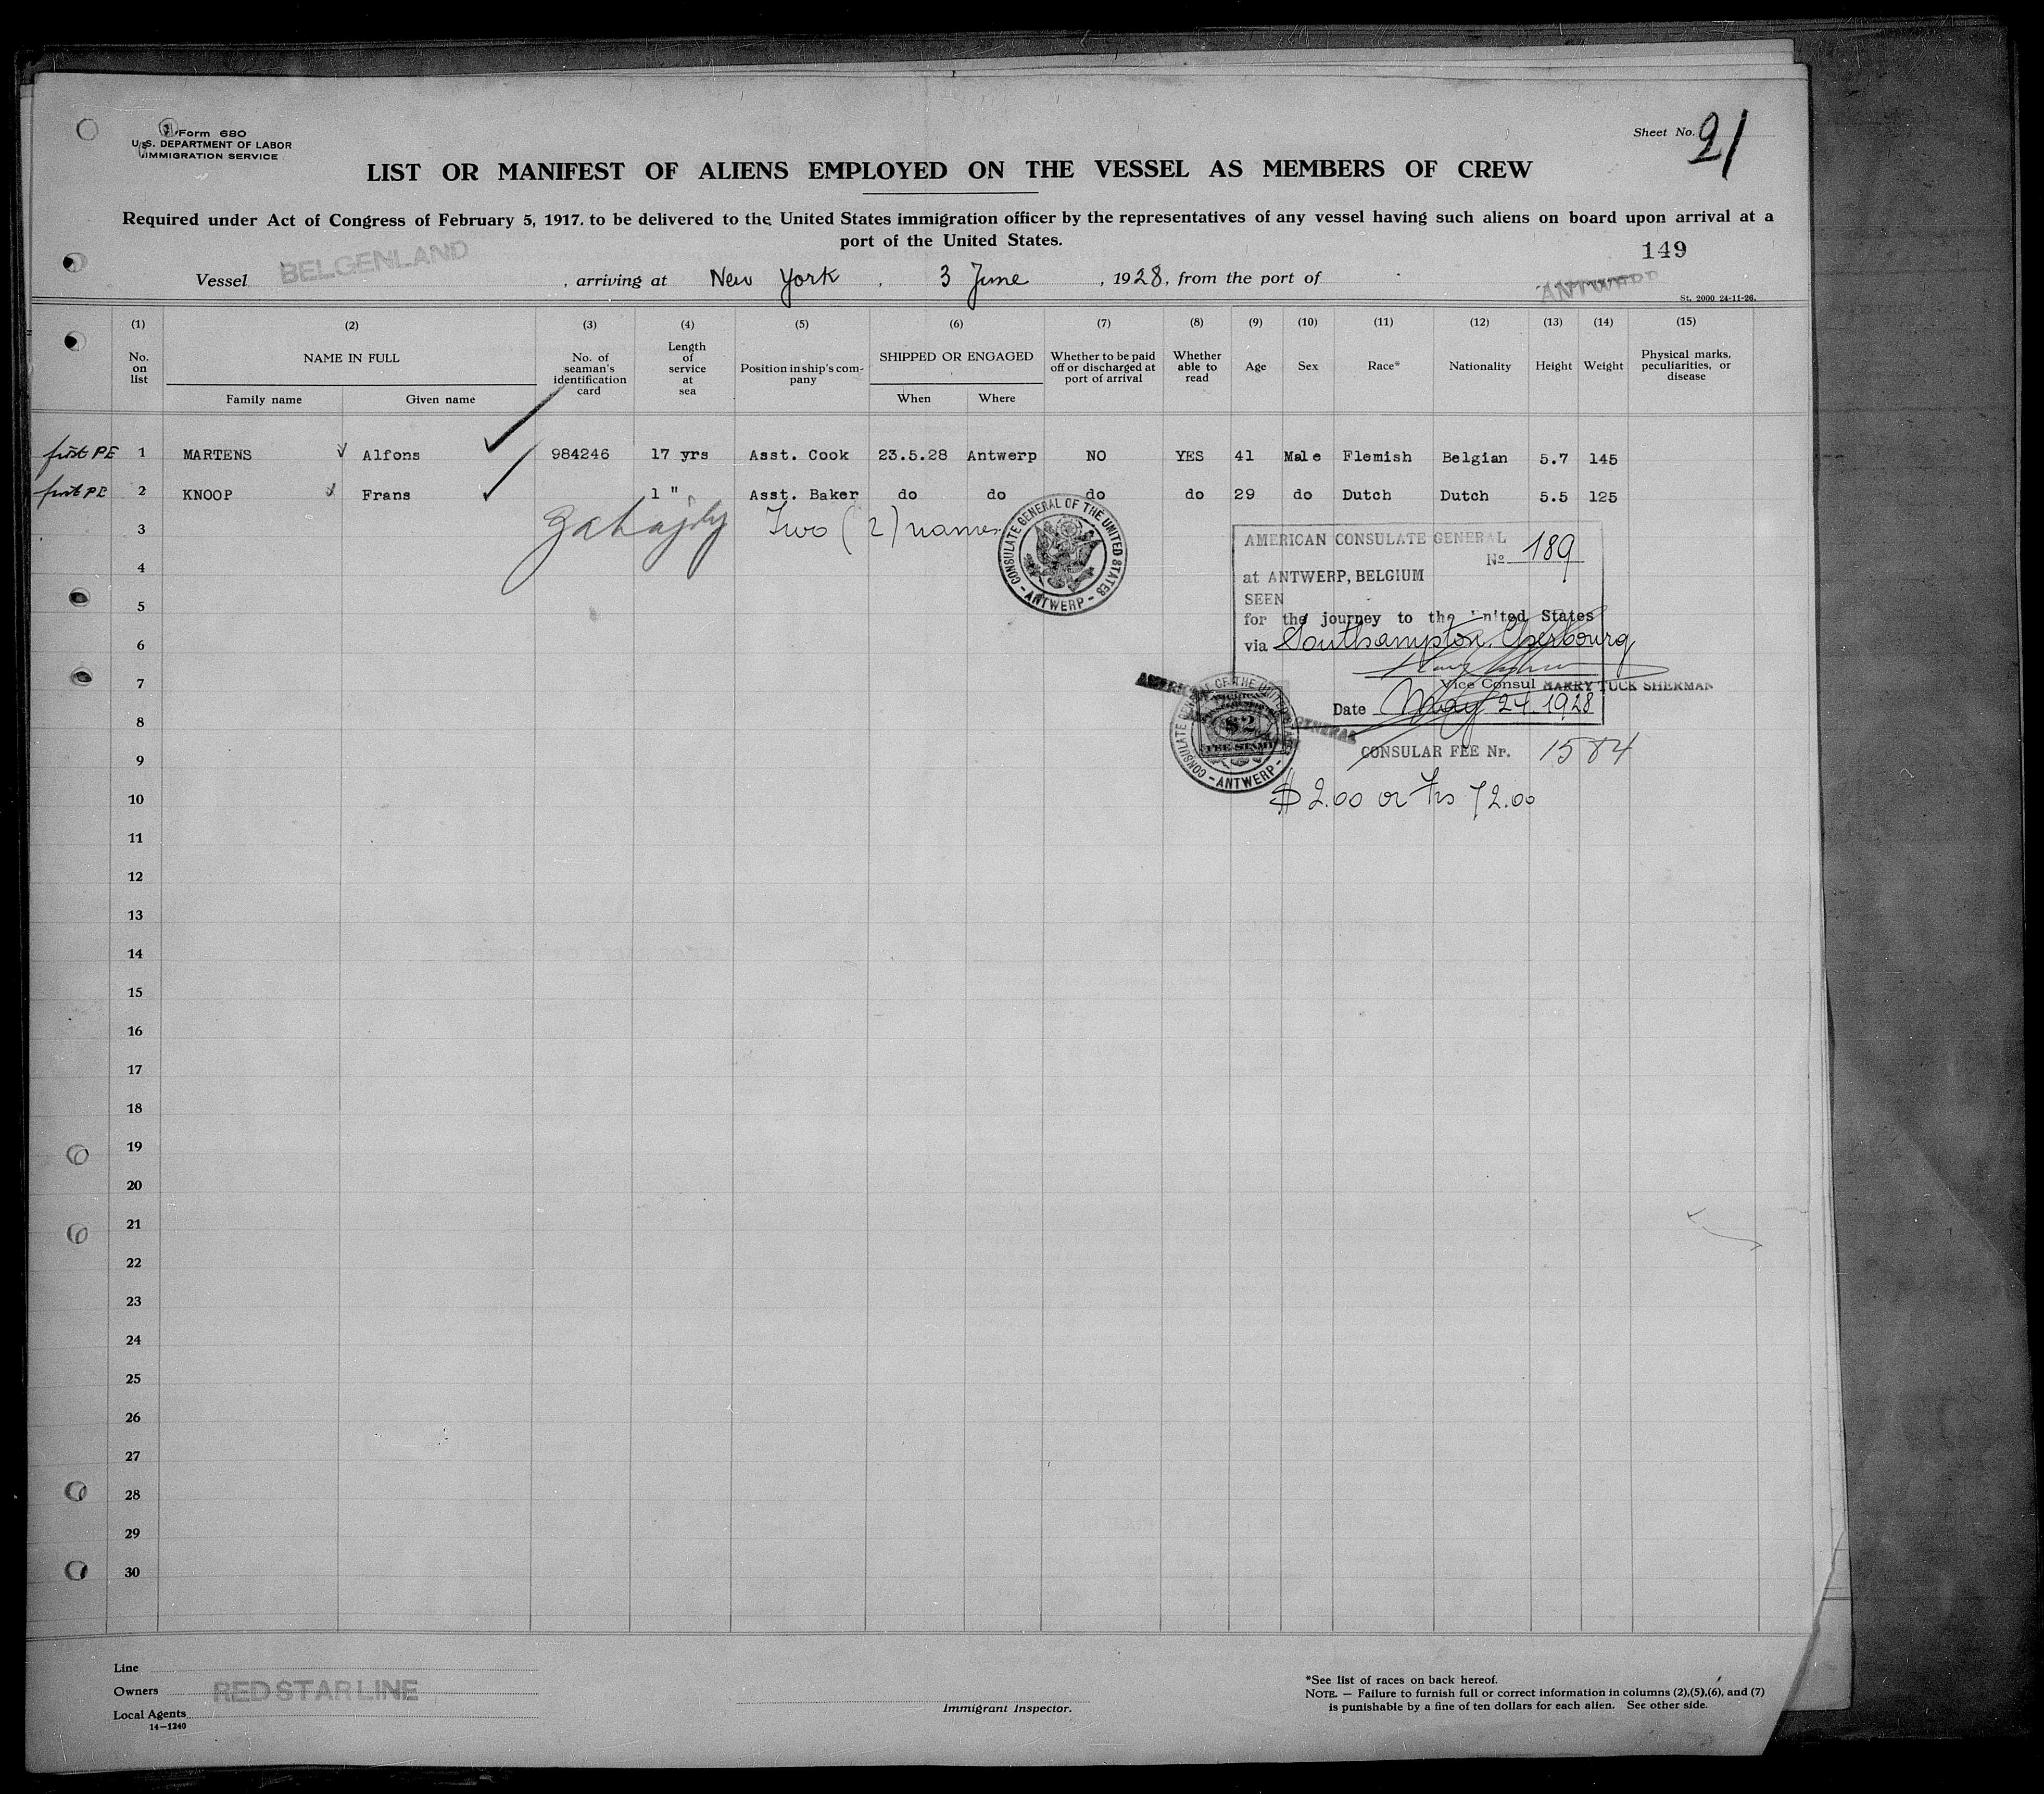 Form 680
U.S. DEPARTMENT OF LABOR
IMMIGRATION SERVICE
Sheet No. 21
LIST OR MANIFEST OF ALIENS EMPLOYED ON THE VESSEL AS MEMBERS OF CREW
Required under Act of Congress of February 5, 1917. to be delivered to the United States immigration officer by the representatives of any vessel having such aliens on board upon arrival at a
port of the United States.
149
Vessel BELGENLAND, arriving at New York, 3 June, 1928, from the port of ANTWERP
St. 2000 24-11-26.
(1) (2) (3) (4) (5) (6) (7) (8) (9) (10) (11) (12) (13) (14) (15)
No. on list NAME IN FULL No. of seaman's identification card Length of service at sea Position in ship's company SHIPPED OR ENGAGED Whether to be paid off or discharged at port of arrival Whether able to read Age Sex Race* Nationality Height Weight Physical marks, peculiarities, or disease
Family name Given name When Where
first PE 1 MARTENS Alfons 984246 17 yrs Asst. Cook 23.5.28 Antwerp NO YES 41 Male Flemish Belgian 5.7 145
first PE 2 KNOOP Frans 1 " Asst. Baker do do do do 29 do Dutch Dutch 5.5 125
3 Two (2) names
CONSULATE GENERAL OF THE UNITED STATES - ANTWERP -
AMERICAN CONSULATE GENERAL
No 189
at ANTWERP, BELGIUM
SEEN
for the journey to the United States
via Southampton, Cherbourg
Vice Consul HARRY TUCK SHERMAN
Date May 24 1928
$2
FEE STAMP
CONSULAR FEE Nr. 1584
$2.00 or Frs 72.00
4
5
6
7
8
9
10
11
12
13
14
15
16
17
18
19
20
21
22
23
24
25
26
27
28
29
30
Line
Owners RED STAR LINE
Local Agents
14-1240
Immigrant Inspector.
*See list of races on back hereof.
NOTE. — Failure to furnish full or correct information in columns (2),(5),(6), and (7)
is punishable by a fine of ten dollars for each alien. See other side.